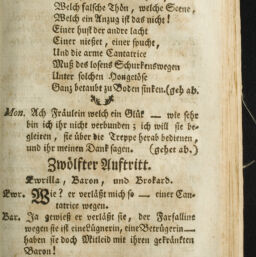 Welch falsche Thön, welche Scene,
Welch ein Anzug ist das nicht!
Einer hust der andre lacht
Einer nießet, einer spucht,
Und die arme Cantatrice
Muß des losens Schurkenswegen
Unter solchen Hongetöse
Ganz betaubt zu Boden sinken. (geh ab.
Mon. Ach Fräulein welch ein Glük — wie sehr
bin ich ihr nicht verbunden; ich will sie be-
gleiten, sie über die Treppe herab bedienen,
und ihr meinen Dank sagen. (gehet ab.)
Zwölfter Auftritt.
Ewrilla, Baron, und Brokard.
Ewr. Wie? er verläßt mich so — einer Can-
tatrice wegen.
Bar. Ja gewieß er verläßt sie, der Farfalline
wegen sie ist eine Lügnerin, eine Betrügerin —
haben sie doch Mitleid mit ihren gekränkten
Baron!